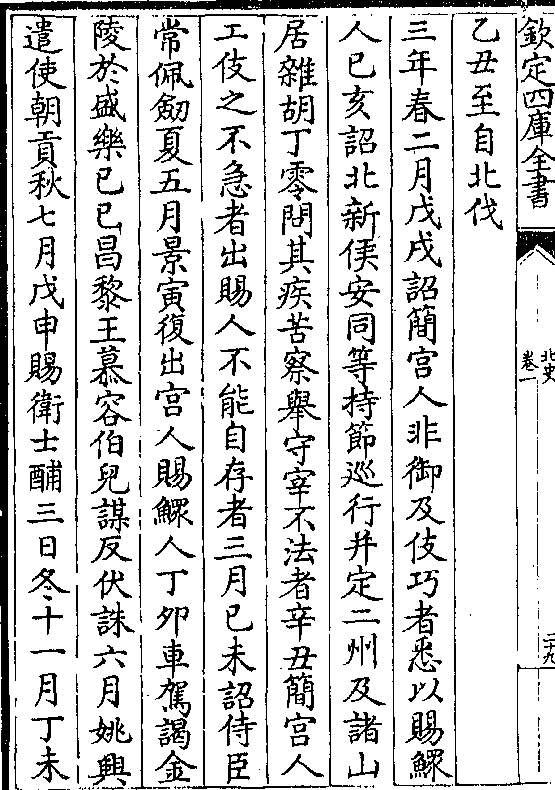 欽定四庫全書
北史
卷一
二十九
乙丑至自北伐
三年春二月戊戌詔簡宫人非御及伎巧者悉以賜鰥
人己亥詔北新侯安同等持節巡行并定二州及諸山
居雜胡丁零問其疾苦察舉守宰不法者辛丑簡宫人
工伎之不急者出賜人不能自存者三月己未詔侍臣
常佩劒夏五月景寅復出宫人賜鰥人丁卯車駕謁金
陵於盛樂己巳昌黎王慕容伯兒謀反伏誅六月姚興
遣使朝貢秋七月戊申賜衛士酺三日冬十一月丁未